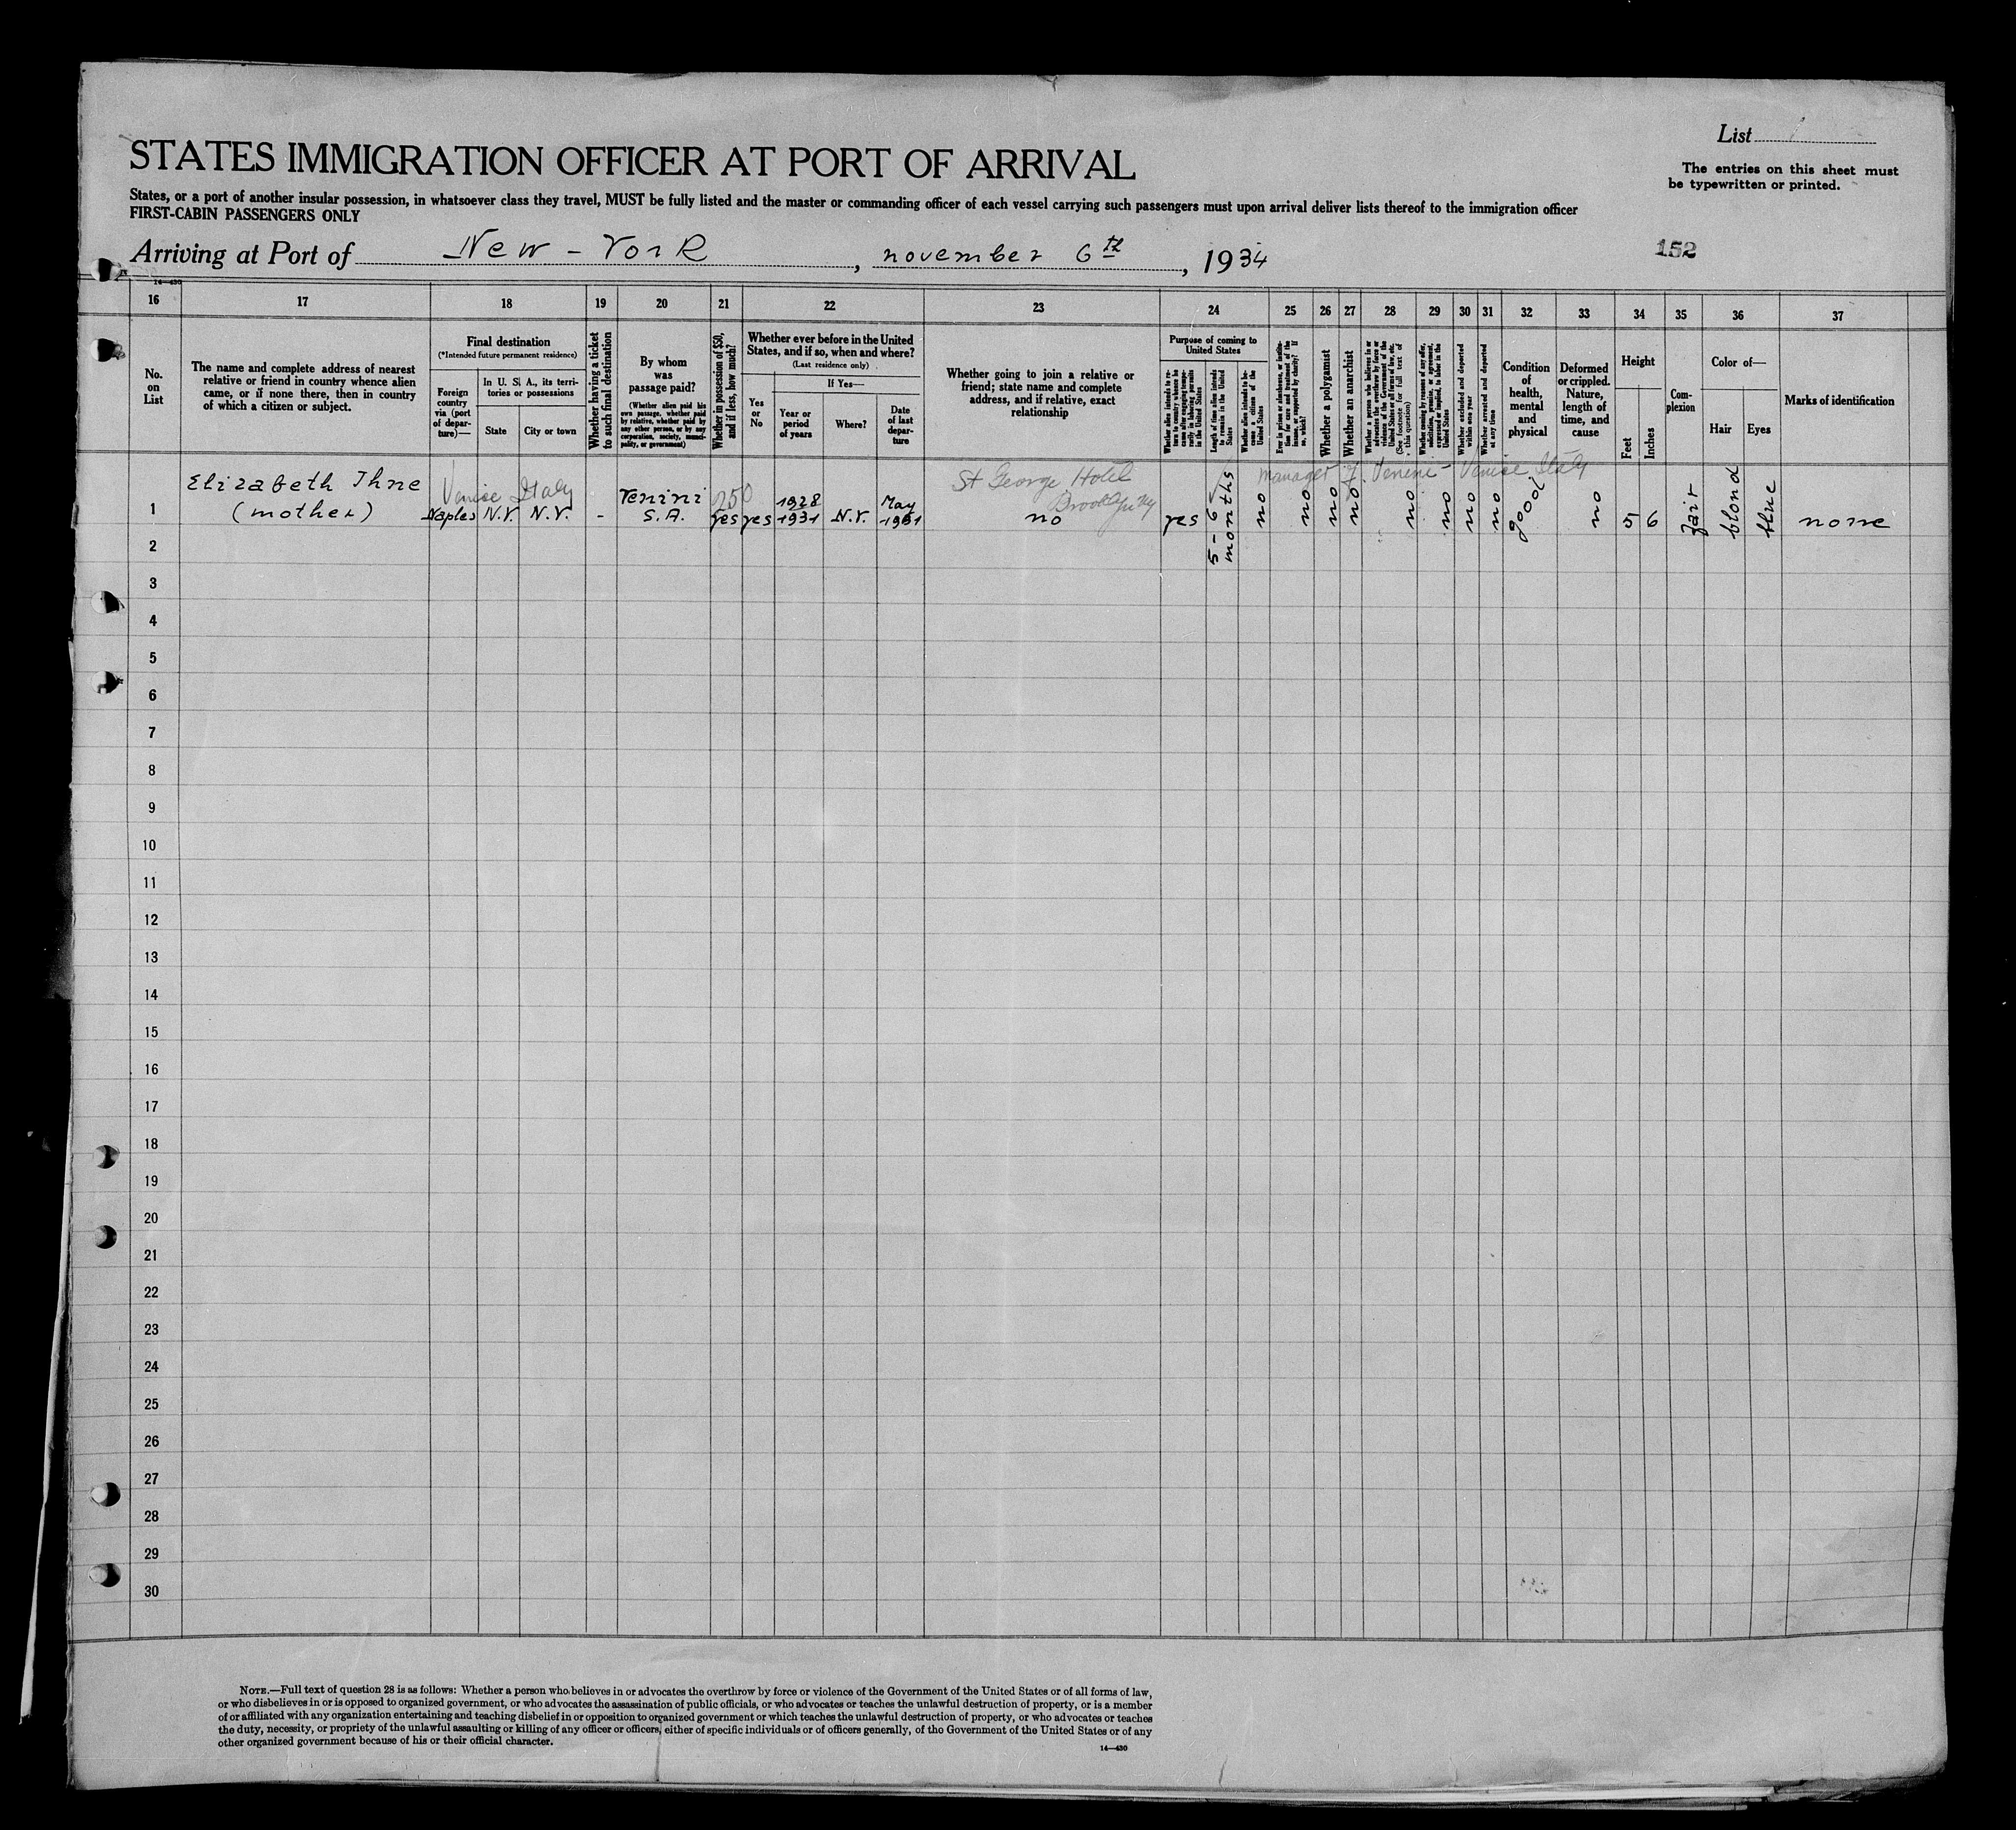 List 1
STATES IMMIGRATION OFFICER AT PORT OF ARRIVAL
The entries on this sheet must
be typewritten or printed.
States, or a port of another insular possession, in whatsoever class they travel, MUST be fully listed and the master or commanding officer of each vessel carrying such passengers must upon arrival deliver lists thereof to the immigration officer
FIRST-CABIN PASSENGERS ONLY
Arriving at Port of New-York, november 6th, 1934
152
14—430
16 17 18 19 20 21 22 23 24 25 26 27 28 29 30 31 32 33 34 35 36 37
No.
on
List
The name and complete address of nearest
relative or friend in country whence alien
came, or if none there, then in country
of which a citizen or subject.
Final destination
(*Intended future permanent residence)
Foreign
country
via (port
of depar-
ture)—
In U. S. A., its terri-
tories or possessions
State
City or town
Whether having a ticket
to such final destination
By whom
was
passage paid?
(Whether alien paid his
own passage, whether paid
by relative, whether paid by
any other person, or by any
corporation, society, munici-
pality, or government)
Whether in possession of $50,
and if less, how much?
Whether ever before in the United
States, and if so, when and where?
(Last residence only)
If Yes—
Yes
or
No
Year or
period
of years
Where?
Date
of last
depar-
ture
Whether going to join a relative or
friend; state name and complete
address, and if relative, exact
relationship
Purpose of coming to
United States
Whether alien intends to re-
turn to country whence he
came after engaging tempo-
rarily in laboring pursuits
in the United States
Length of time alien intends
to remain in the United
States
Whether alien intends to be-
come a citizen of the
United States
Ever in prison or almshouse, or institu-
tion for care and treatment of the
insane, or supported by charity? If
so, which?
Whether a polygamist
Whether an anarchist
Whether a person who believes in or
advocates the overthrow by force or
violence of the Government of the
United States or all forms of law, etc.
(See footnote for full text of
this question)
Whether coming by reasons of any offer,
solicitation, promise, or agreement,
expressed or implied, to labor in the
United States
Whether excluded and deported
within one year
Whether arrested and deported
at any time
Condition
of
health,
mental
and
physical
Deformed
or crippled.
Nature,
length of
time, and
cause
Height
Feet
Inches
Com-
plexion
Color of—
Hair
Eyes
Marks of identification
Venise Italy
250
St George Hotel
Brooklyn Ny
manager f. Venini - Venise Italy
1 Elizabeth Ihne
(mother)
Naples N.Y. N.Y. - Venini
S.A. yes yes 1928
1931 N.Y. May
1931 no yes 5-6
months no no no no no no no no good no 5 6 fair blond blue none
2
3
4
5
6
7
8
9
10
11
12
13
14
15
16
17
18
19
20
21
22
23
24
25
26
27
28
29
30
NOTE.—Full text of question 28 is as follows: Whether a person who believes in or advocates the overthrow by force or violence of the Government of the United States or of all forms of law,
or who disbelieves in or is opposed to organized government, or who advocates the assassination of public officials, or who advocates or teaches the unlawful destruction of property, or is a member
of or affiliated with any organization entertaining and teaching disbelief in or opposition to organized government or which teaches the unlawful destruction of property, or who advocates or teaches
the duty, necessity, or propriety of the unlawful assaulting or killing of any officer or officers, either of specific individuals or of officers generally, of the Government of the United States or of any
other organized government because of his or their official character.
14—430